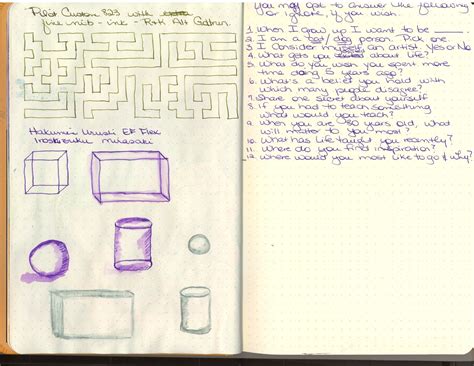 Pilot Custom 823 with
fine nib - ink - Alt
Urushi EF Flex
You may opt to answer the following
or ignore, if you wish.
1. When I grow up I want to be _____.
2. I am a cat/dog person. Pick one
3. I consider myself an artist. Yes or No
4. What gets you about life?
5. What do you wish you spent more
time doing 5 years ago?
6. What's a belief you hold with
which many people disagree?
7. Share one secret about yourself
8. If you had to teach something
what would you teach?
9. When you are 80 years old, what
will matter to you most?
10. What has life taught you recently?
11. Where do you find inspiration?
12. Where would you most like to go & why?